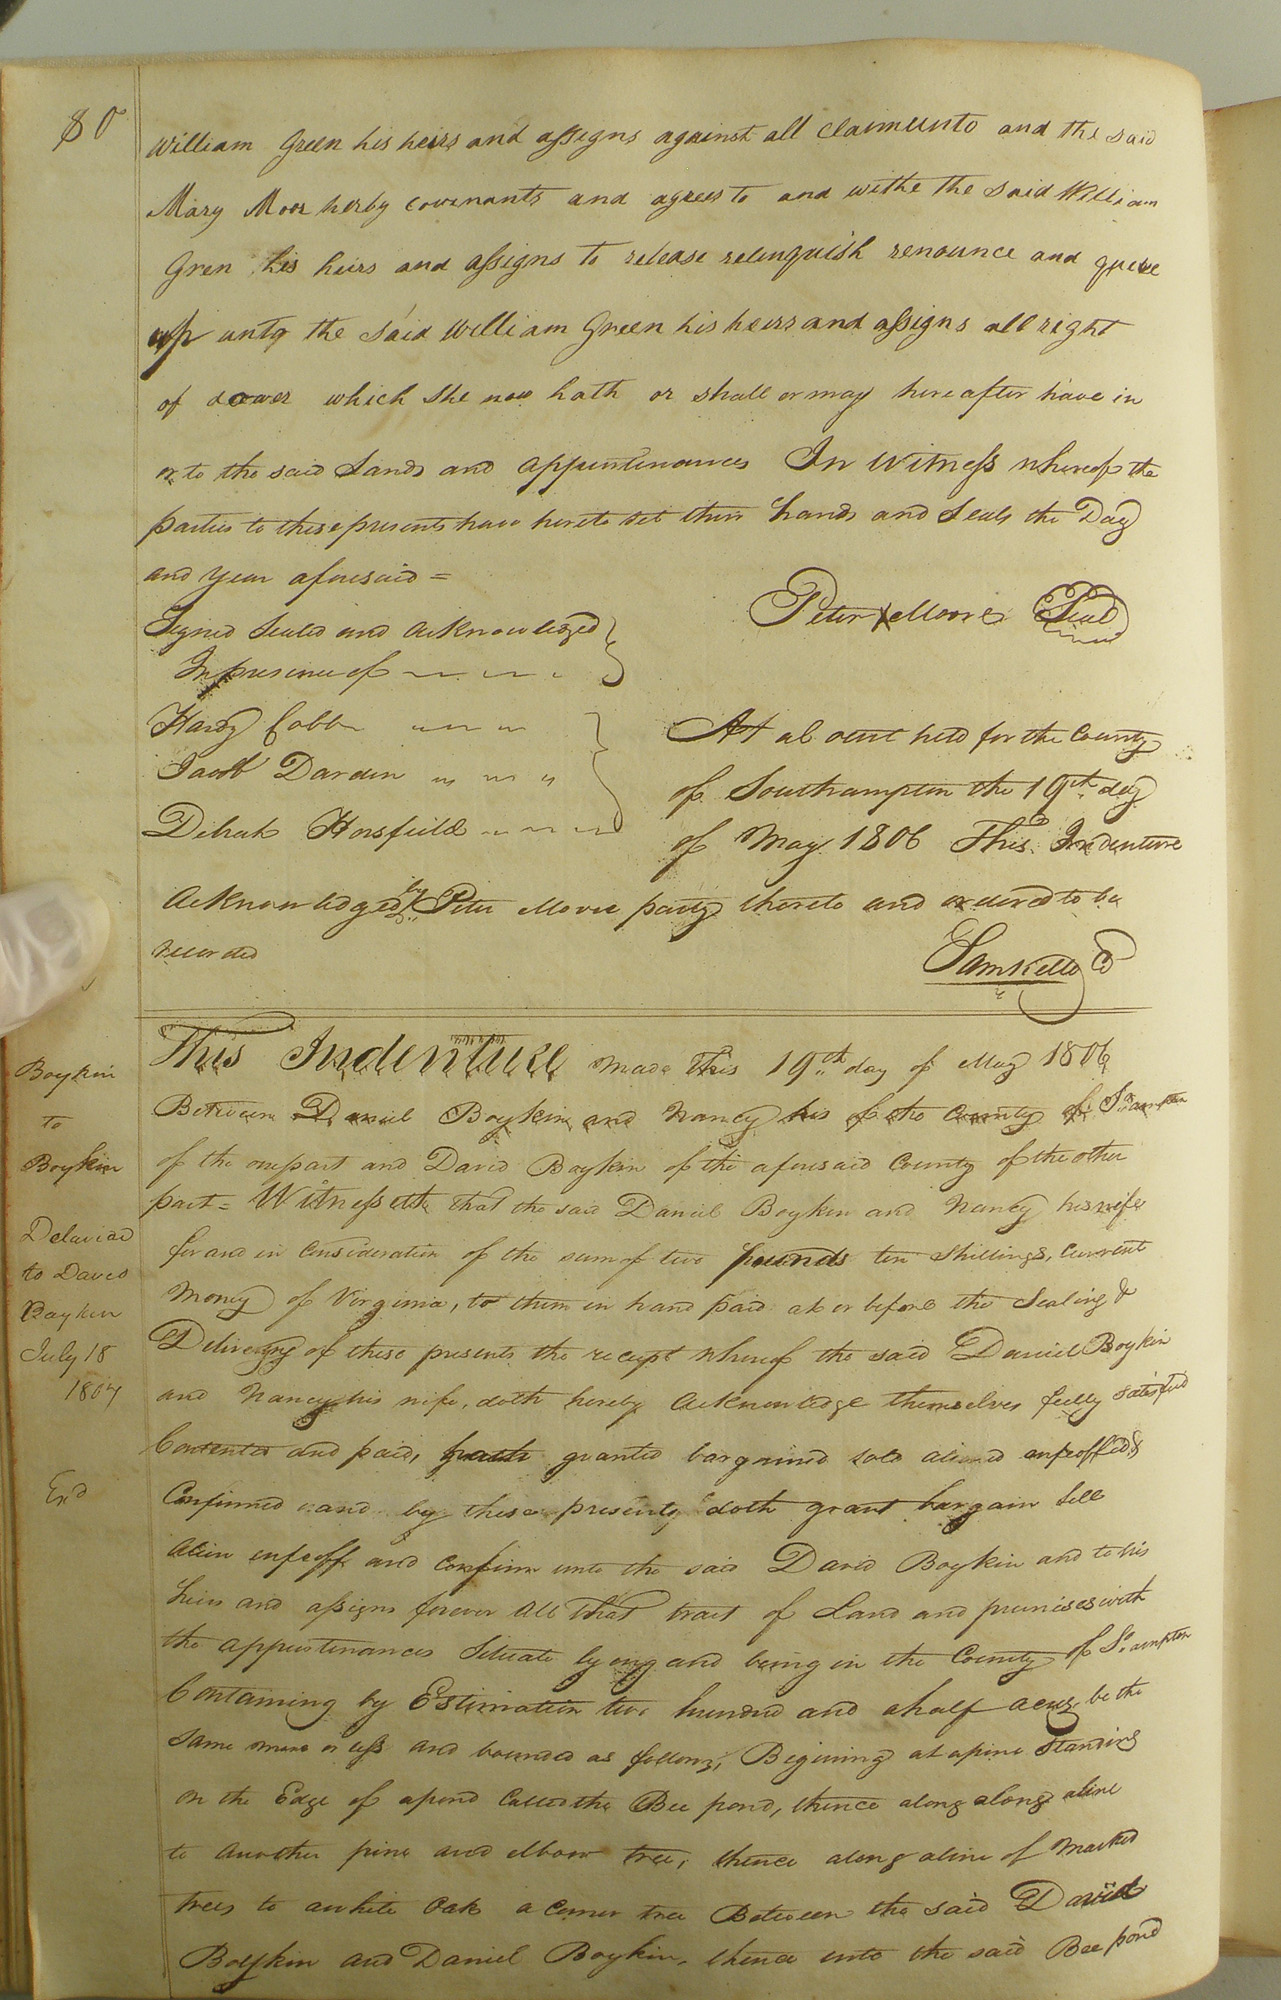 80
William Green his heirs and assigns against all claimunts and the said
Mary Moor herby covenants and agrees to and withe the said William
Gren his heirs and assigns to release relenquish renounce and
up unto the said William Green his heirs and assigns all right
of dower which she now hath or shall or may hereafter have in
or to the said Lands and appurtenances In Witness whereof the
parties to these presents have hereto set their hands and Seals the Day
and year aforesaid =
Signed Sealed and Acknowledged
In presence of
Peter X Moore Seal
Hardy Cobb
Jacob Darden
Horsfield
At a Court held for the County
of Southampton the 19th day
of May 1806 This Indenture
Acknowledged by Peter Moore party thereto and ordered to be
recorded
Sam Kello C
Boykin
to
Boykin
Delavired
to David
Boykin
July 18
1807
Exd
This Indenture made this 19th day of May 1806
Between Daniel Boykin and Nancy his of the County of S.ampton
of the one part and David Boykin of the aforesaid County of the other
part = Witnesseth that the said Daniel Boykin and Nancy his wife
for and in Consideration of the sum of two pounds ten Shillings, Current
Money of Virginia, to them in hand paid at or before the Sealing &
Delivery of these presents the receipt whereof the said Daniel Boykin
and Nancy his wife, doth hereby Acknowledge themselves fully satisfied
Contented and paid, granted bargained sold aliened enfeoffed &
Confirmed and by these presents, doth grant bargain Sell
Alien enfeoff and Confirm unto the said David Boykin and to his
heirs and assigns forever All that tract of Land and premises with
the appurtenances Situate lyeng and being in the County of S.ampton
Containing by Estimation two hundred and a half acres be the
same more or less and bounded as follows, Begining at a pine Standing
on the Edge of a pond Called the Bee pond, thence along along a line
to another pine and elbow tree, thence along a line of Marked
trees to a white Oak a corner tree Between the said David
Boykin and Daniel Boykin, thence unto the said Bee pond